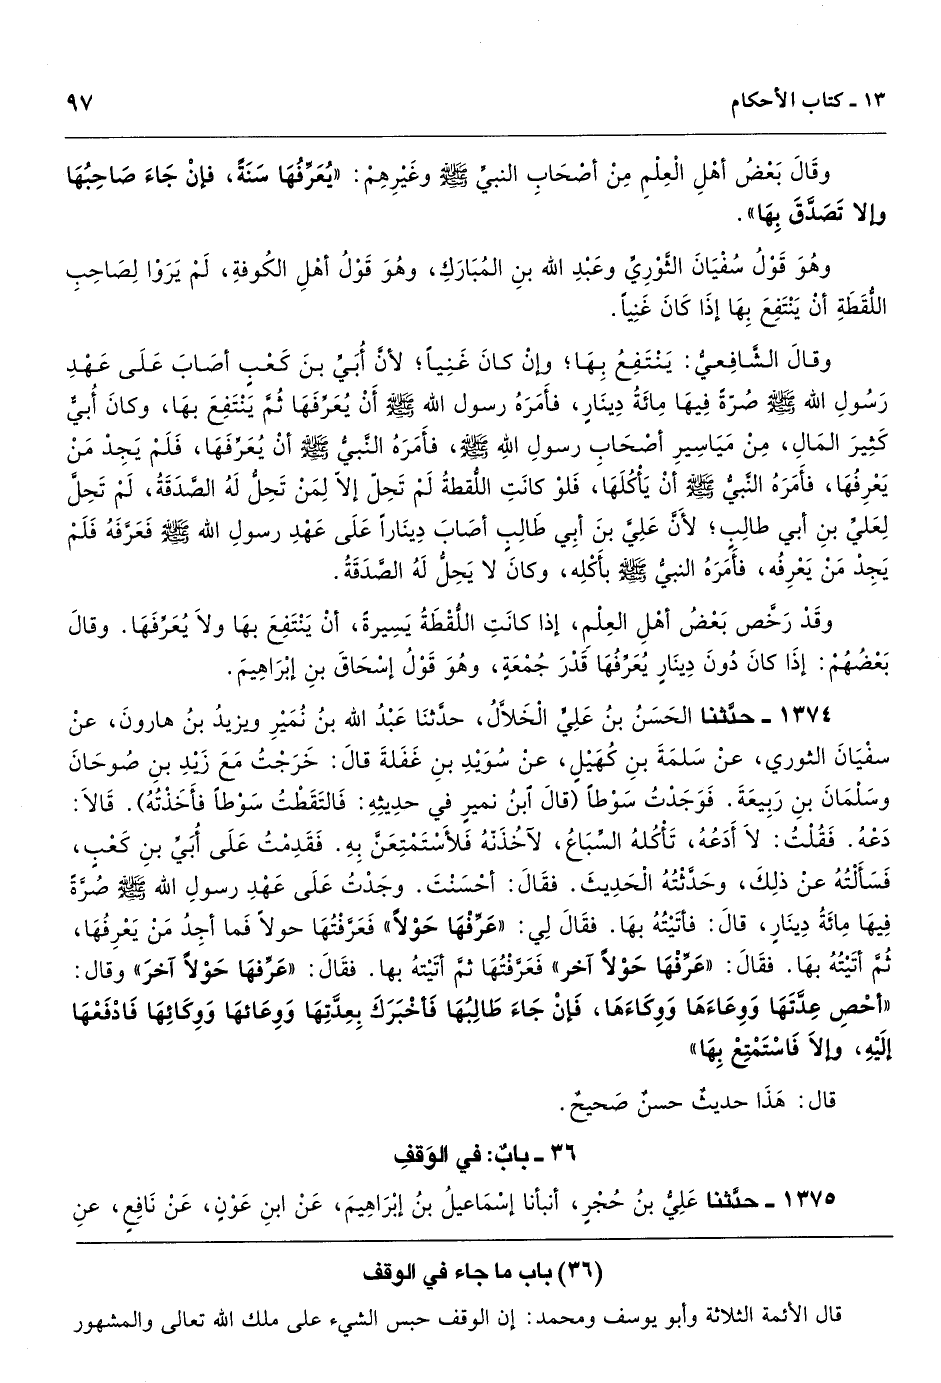 ١٣ ـ كتاب الأحكام ٩٧
وقَالَ بَعْضُ أهْلِ الْعِلْمِ مِنْ أصْحَابِ النبيِّ ﷺ وغَيْرِهِمْ: «يُعَرِّفُهَا سَنَةً، فإنْ جَاءَ صَاحِبُهَا
وإلا تَصَدَّقَ بِهَا».
وهُوَ قَوْلُ سُفْيَانَ الثَّوْرِيِّ وعَبْدِ الله بنِ المُبَارَكِ، وهُوَ قَوْلُ أهْلِ الكُوفةِ، لَمْ يَرَوْا لِصَاحِبِ
اللُّقَطَةِ أنْ يَنْتَفِعَ بِهَا إذَا كَانَ غَنِياً.
وقالَ الشَّافِعيُّ: يَنْتَفِعُ بِهَا؛ وإنْ كانَ غَنِياً؛ لأنَّ أُبَيَّ بنَ كَعْبٍ أصَابَ عَلَى عَهْدِ
رَسُولِ الله ﷺ صُرّةً فِيهَا مِائَةُ دِينَارٍ، فأمَرَهُ رسول الله ﷺ أَنْ يُعَرِّفَهَا ثُمَّ يَنْتَفِعَ بها، وكانَ أُبيٌّ
كَثِيرَ المَالِ، مِنْ مَيَاسِيرِ أصْحَابِ رسولِ الله ﷺ، فأمَرَهُ النَّبيُّ ﷺ أنْ يُعَرِّفَهَا، فَلَمْ يَجِدْ مَنْ
يَعْرِفُهَا، فأمَرَهُ النَّبيُّ ﷺ أنْ يَأْكُلَهَا، فَلَوْ كانَتِ اللُّقطةُ لَمْ تَحِلّ إلاّ لِمَنْ تَحِلُّ لَهُ الصَّدَقَةُ، لَمْ تَحِلَّ
لِعَليِّ بنِ أبي طالِبٍ؛ لأنَّ عَلِيَّ بنَ أبِي طَالِبٍ أصَابَ دِينَاراً عَلَى عَهْدِ رسولِ الله ﷺ فَعَرَّفَهُ فَلَمْ
يَجِدْ مَنْ يَعْرِفُه، فأَمَرَهُ النبيُّ ﷺ بأَكْلِه، وكانَ لا يَحِلُّ لَهُ الصَّدَقَةُ.
وقَدْ رَخَّص بَعْضُ أهلِ العِلْمِ، إذا كانَتِ اللُّقْطَةُ يَسِيرةً، أنْ يَنْتَفِعَ بها ولاَ يُعَرِّفَهَا. وقالَ
بَعْضُهُمْ: إذَا كانَ دُونَ دِينَارٍ يُعَرِّفُهَا قَدْرَ جُمْعَةٍ، وهُوَ قَوْلُ إسْحَاقَ بنِ إبْرَاهِيمَ.
١٣٧٤ ـ حدَّثنا الحَسَنُ بنُ عَلِيٍّ الْخَلاَّلُ، حدَّثنَا عَبْدُ الله بنُ نُمَيْرٍ ويزيدُ بنُ هارونَ، عنْ
سفْيَانَ الثوري، عنْ سَلَمَةَ بنِ كُهَيْلٍ، عنْ سُوَيْدِ بنِ غَفَلةَ قالَ: خَرَجْتُ مَعَ زَيْدِ بنِ صُوحَانَ
وسَلْمَانَ بنِ رَبِيعَةَ. فَوَجَدْتُ سَوْطاً (قالَ ابنُ نميرٍ في حديثِهِ: فَالتَقَطْتُ سَوْطاً فأخَذْتُهُ). قالاَ:
دَعْهُ. فَقُلْتُ: لاَ أَدَعُهُ، تَأكلهُ السِّبَاعُ، لآخُذَنّهُ فَلأسْتَمْتِعَنَّ بِهِ. فقَدِمْتُ عَلَى أُبَيِّ بنِ كَعْبٍ،
فَسَألْتُهُ عنْ ذلِكَ، وحَدَّثْتُهُ الْحَدِيثَ. فقالَ: أحْسَنْتَ. وجَدْتُ عَلَى عَهْدِ رسولِ الله ﷺ صُرَّةً
فِيهَا مِائَةُ دِينَارٍ، قالَ: فأتَيْتُهُ بها. فقَالَ لِي: «عَرِّفْهَا حَوْلاً» فَعَرَّفْتُهَا حولاً فَما أجِدُ مَنْ يَعْرِفُهَا،
ثُمَّ أتَيْتُهُ بهَا. فقَالَ: «عَرِّفْهَا حَوْلاً آخر» فَعَرَّفْتُهَا ثمَّ أتَيْتهُ بها. فقَالَ: «عَرِّفهَا حَوْلاً آخرَ» وقال:
«أحْصِ عِدَّتَهَا وَوِعَاءَهَا وَوِكَاءَهَا، فَإنْ جَاءَ طَالِبُهَا فَأخْبَرَكَ بِعِدَّتِهَا وَوِعَائهَا وَوِكَائِهَا فَادْفَعْهَا
إلَيْهِ، وإلاَ فَاسْتَمْتِعْ بِهَا»
قال: هَذَا حديثٌ حسنٌ صَحيحٌ.
٣٦ ـ بابٌ: في الوَقفِ
١٣٧٥ ـ حدَّثنا عَلِيُّ بنُ حُجْرٍ، أنبأنا إسْمَاعيلُ بنُ إبْرَاهِيمَ، عَنْ ابنِ عَوْنٍ، عَنْ نَافِعٍ، عنِ
(٣٦) باب ما جاء في الوقف
قال الأئمة الثلاثة وأبو يوسف ومحمد: إن الوقف حبس الشيء على ملك الله تعالى والمشهور